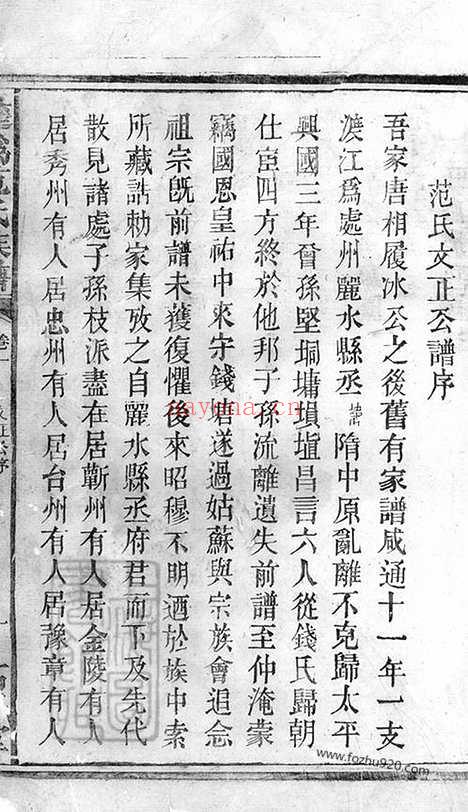 范氏文正公譜序
吾家唐相履冰公之後舊有家譜咸通十一年一支
渡江爲處州麗水縣丞 隋中原亂離不克歸太平
興國三年曾孫堅垌墉塤壚昌言六人從錢氏歸朝
仕宦四方終於他邦子孫流離遺失前譜至仲淹蒙
竊國恩皇祐中來守錢塘遂過姑蘇與宗族會追念
祖宗旣前譜未獲復懼後來昭穆不明迺於族中索
所藏誥勅家集攷之自麗水縣丞府君而下及先代
散見諸處子孫枝派盡在居蘄州有人居金陵有人
居秀州有人居忠州有人居台州有人居豫章有人
卷一
nayona.cn
www.fozhu920.com